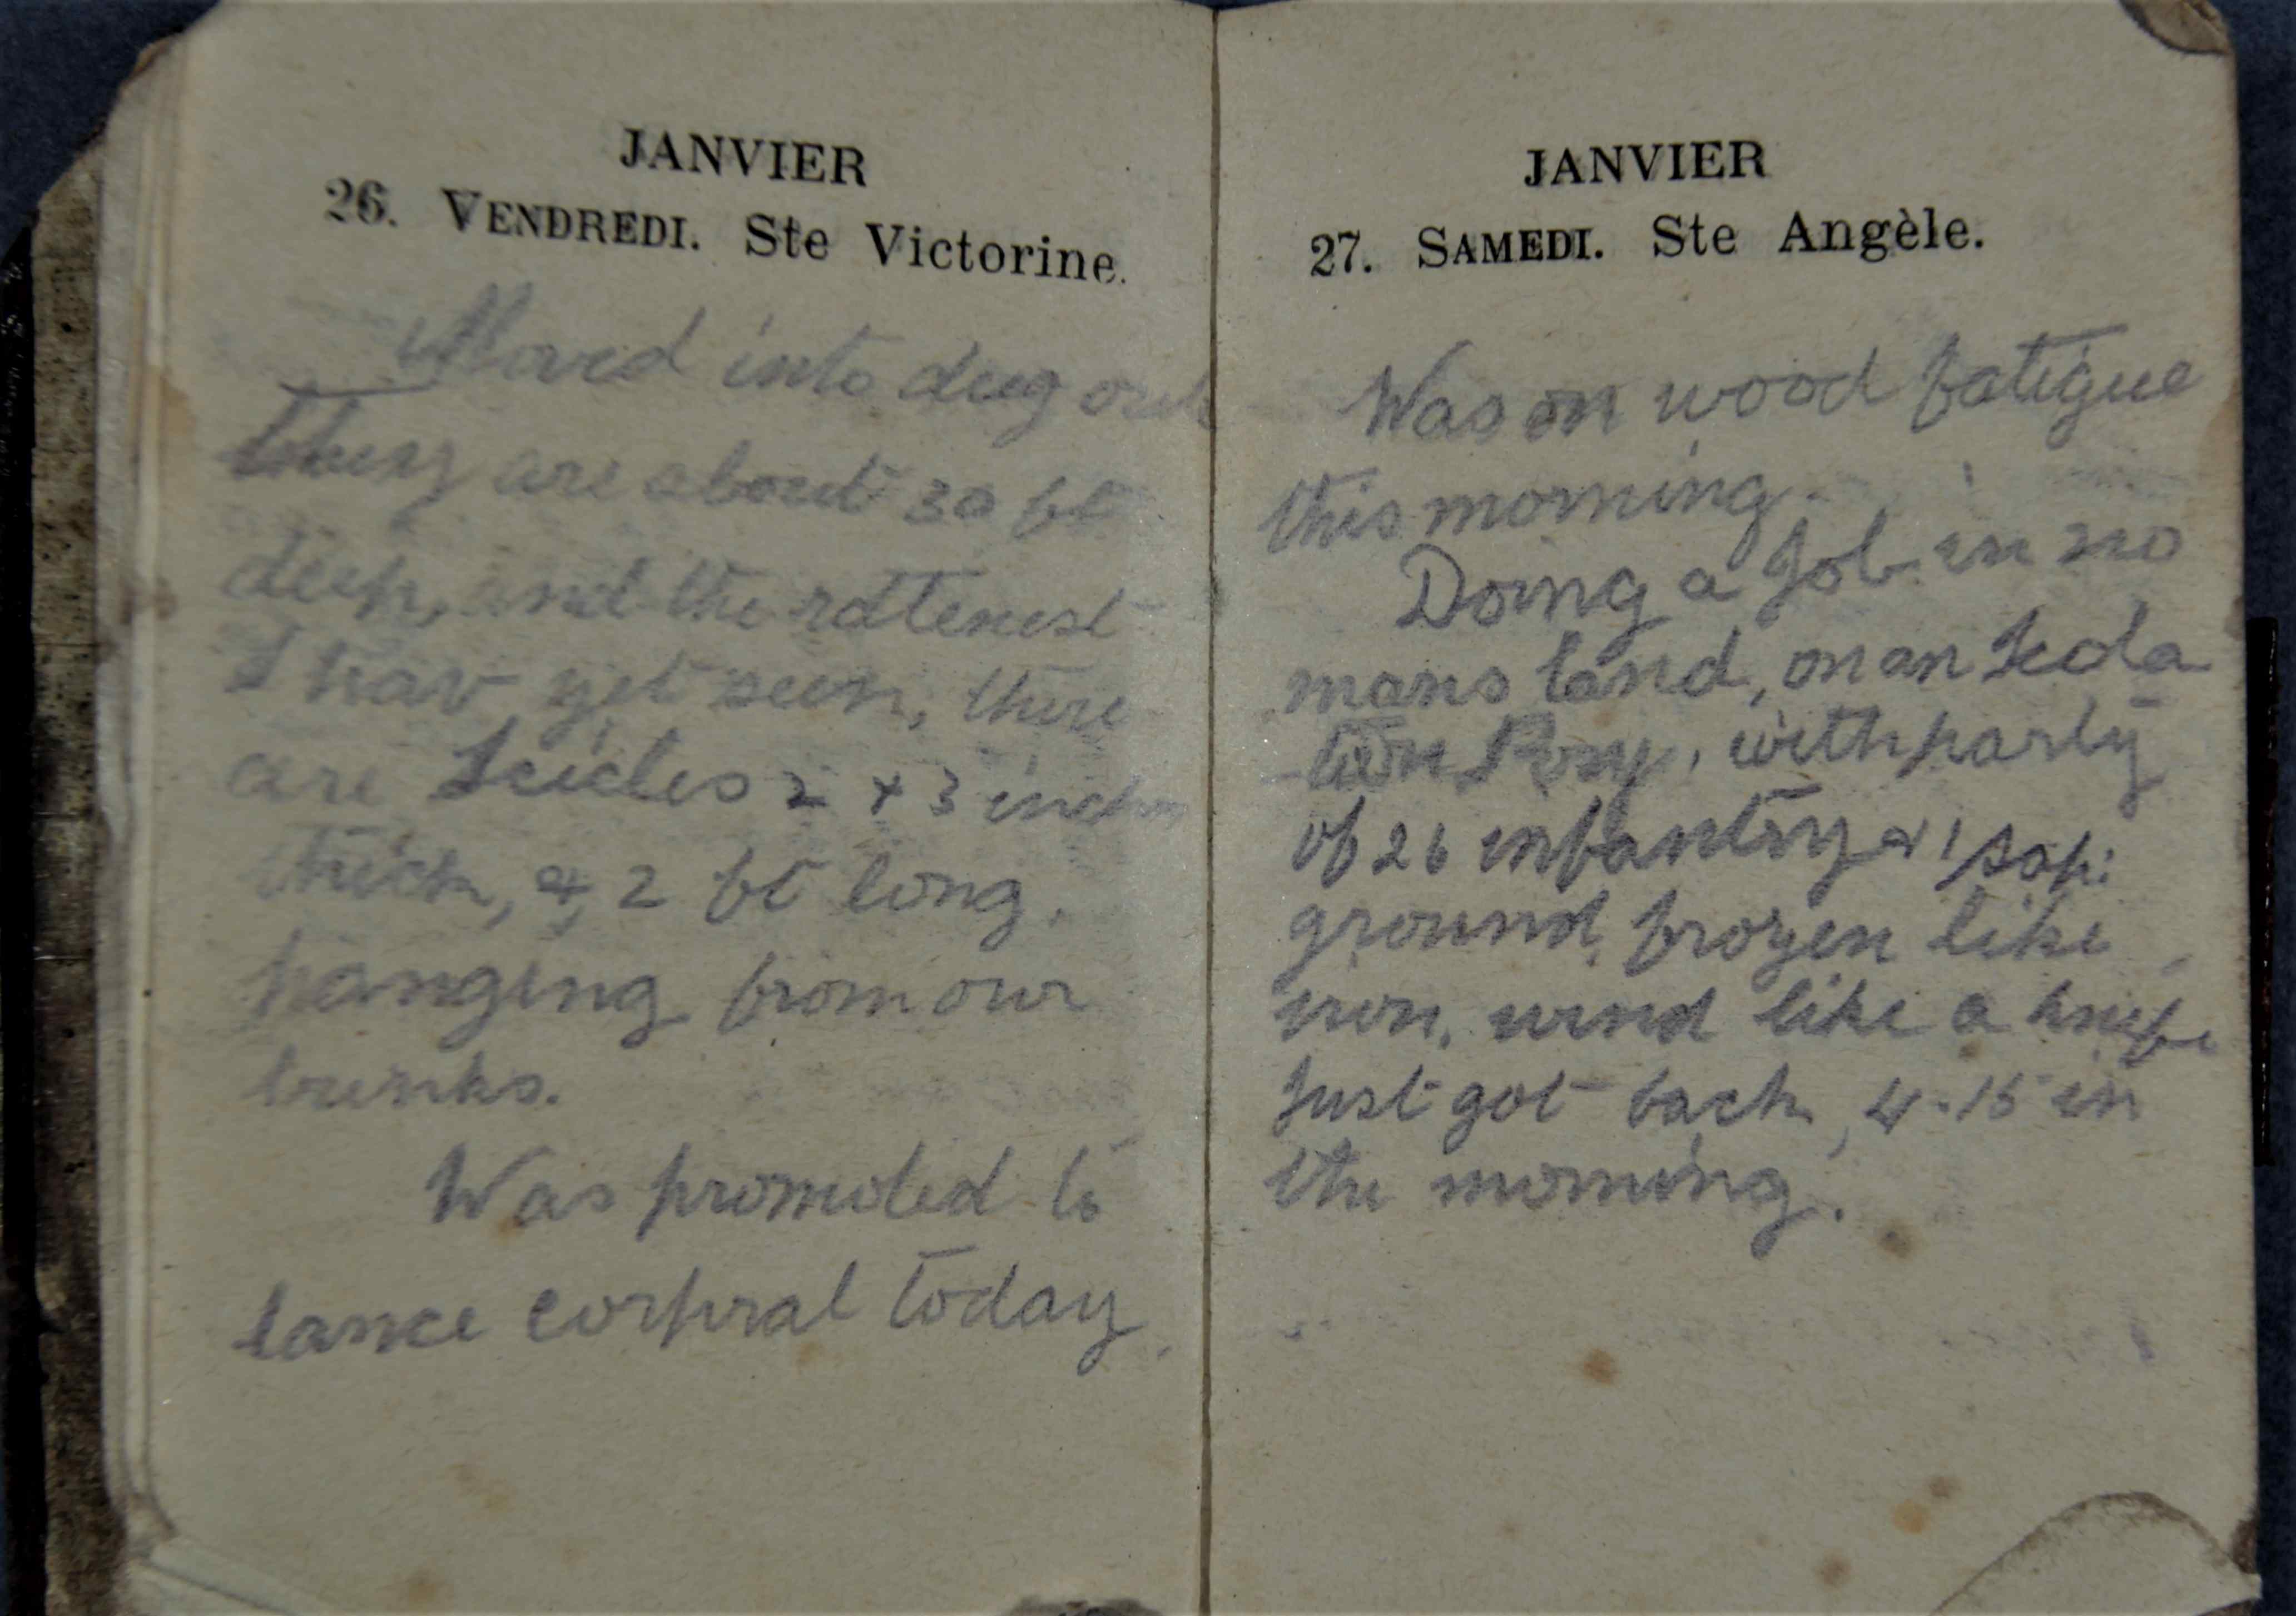 JANVIER
26. VENDREDI. Ste Victorine.
Moved into dug out
they are about 30 ft
deep, and the rottenest
I hav yet seen, there
are Icicles 2 + 3 inches
thick, & 2 ft long.
hanging from our
bunks.
Was promoted to
lance corpral today.
JANVIER
27. SAMEDI. Ste Angèle.
Was on wood fatigue
this morning.
Doing a job in no
mans land, on an
with party
of 26 infantry & 1 sap:
ground frozen like
iron, wind like a knife
Just got back, 4.15 in
the morning.